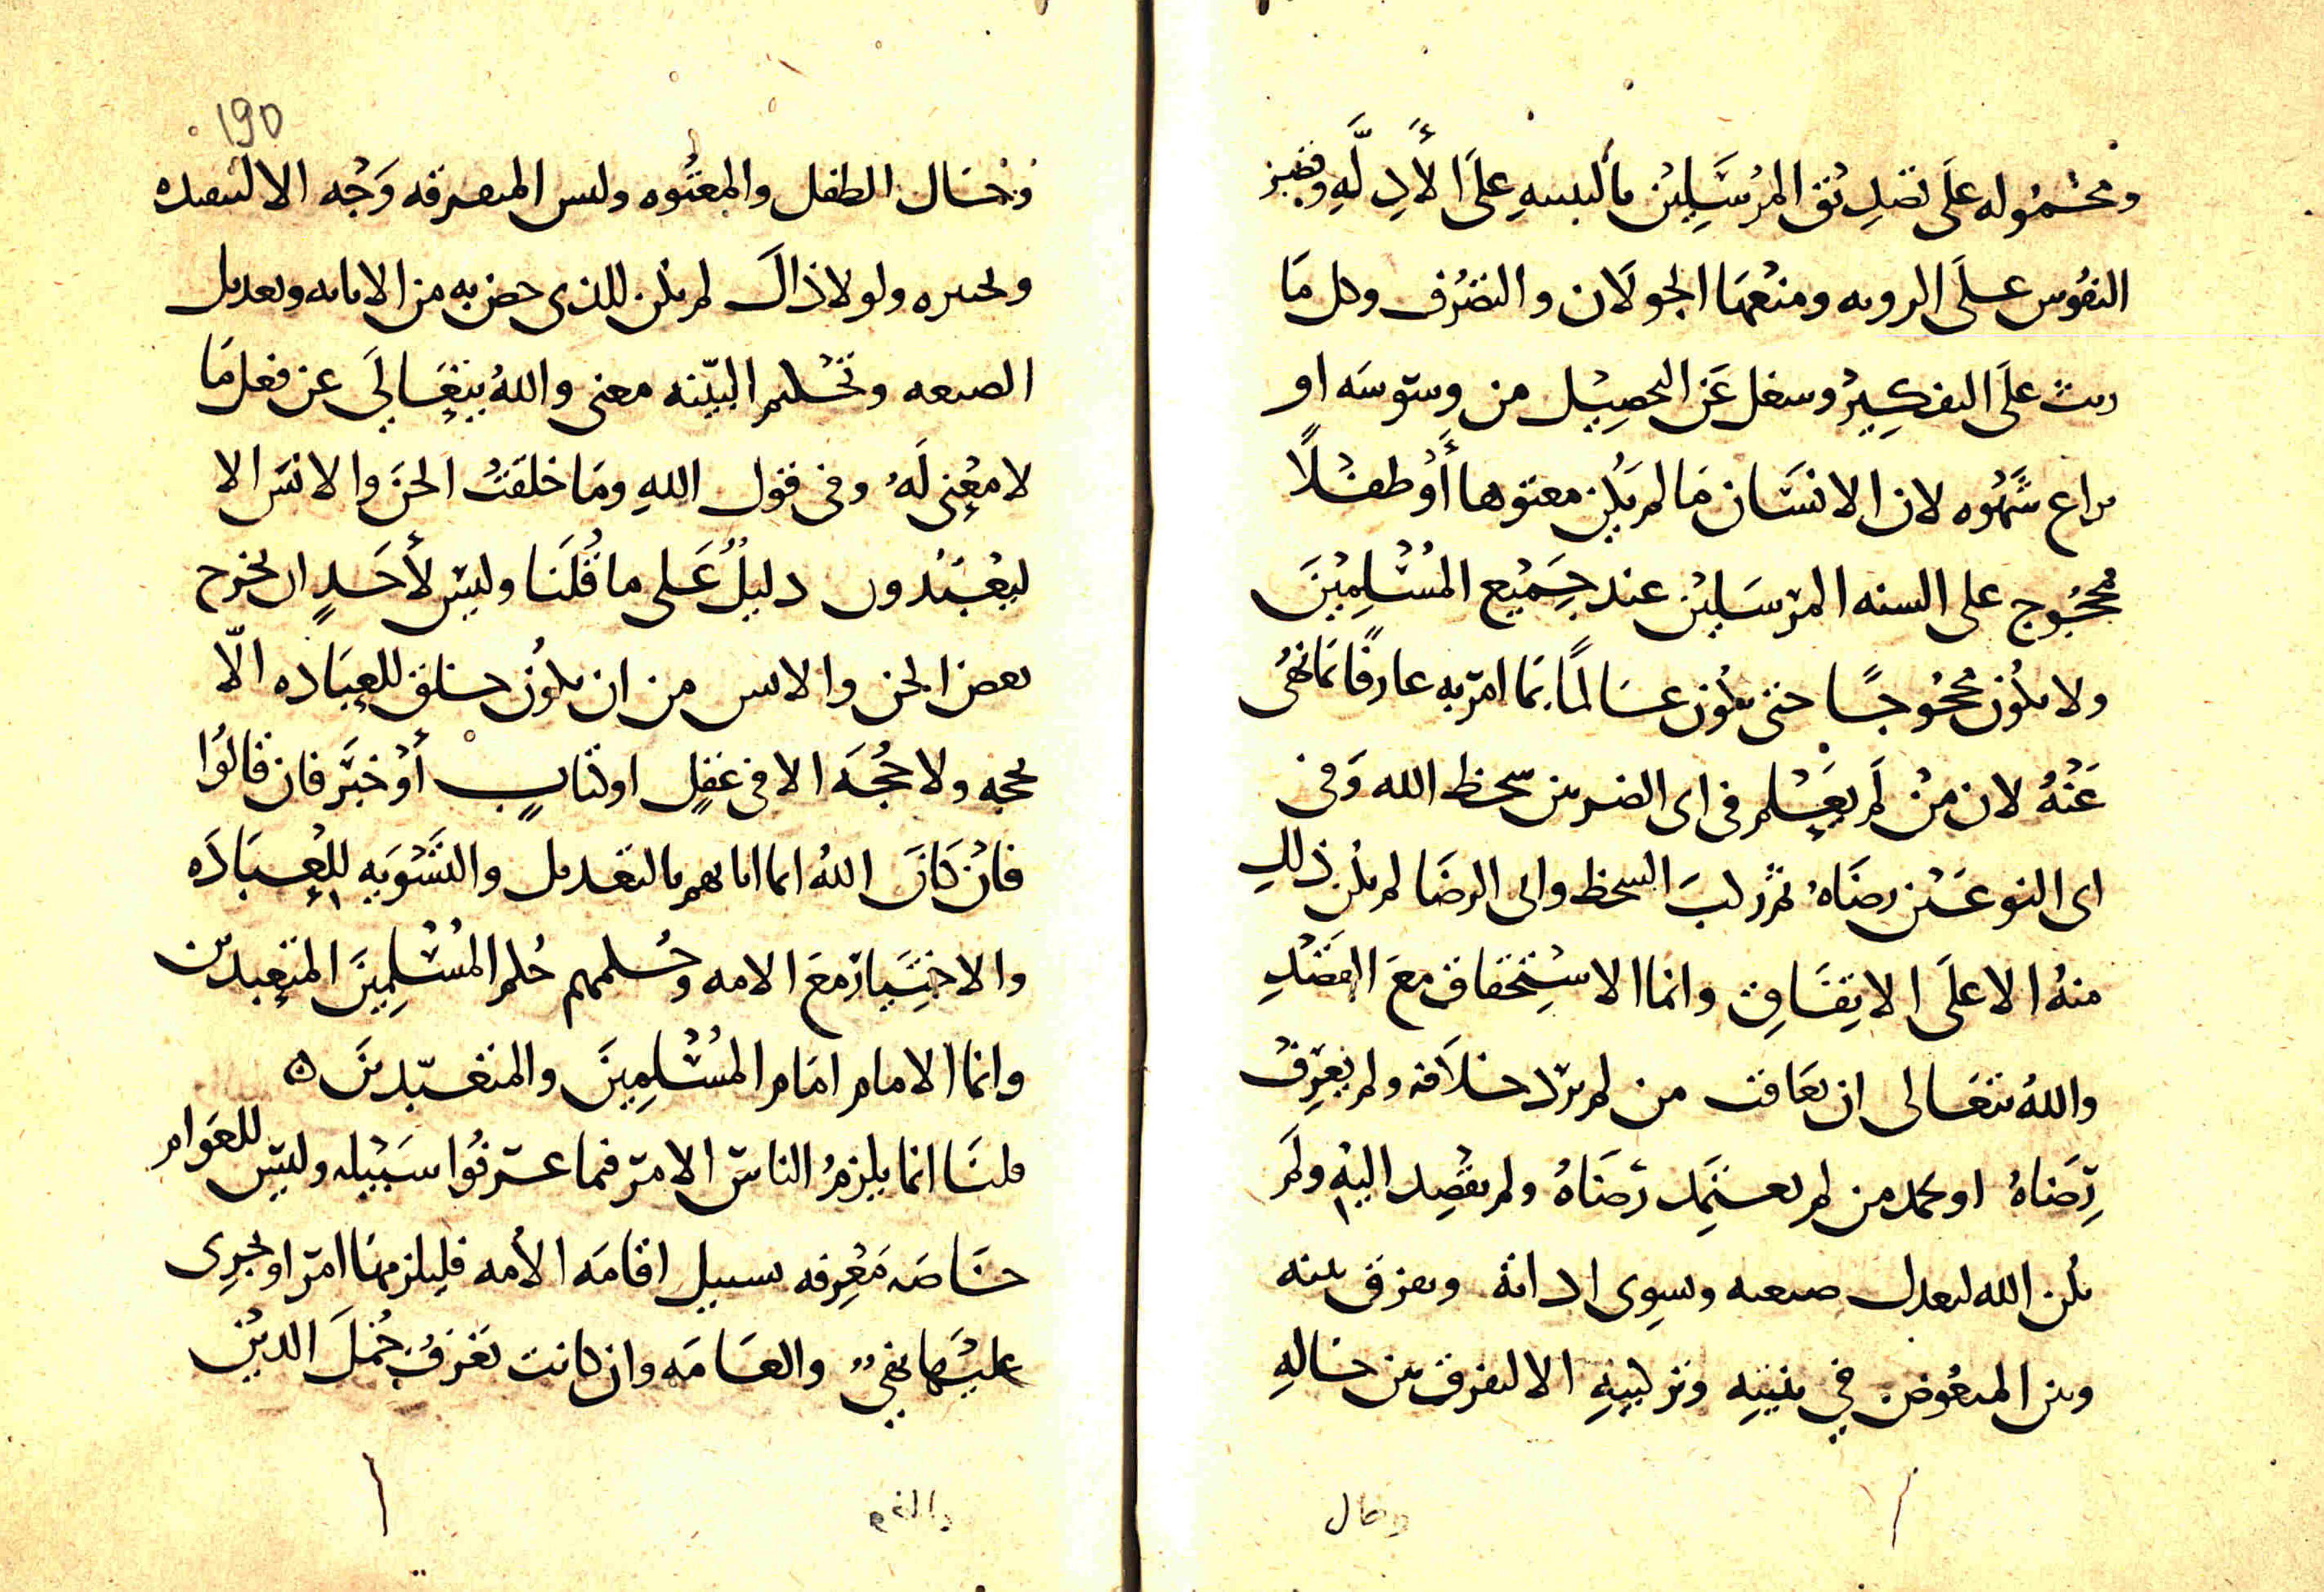 ومحموله على تصديق المرسلين بالبسه على الأدلة وقصر
النفوس على الرويه ومنعها الجولان والتصرف وكل ما
ريث على التفكير وشغل عن التحصيل من وسوسه او
نزاع شهوه لان الانسان ما لم يكن معتوها أو طفلًا
محجوج على السنه المرسلين عند جميع المسلمين
ولا يكون محجوجًا حتى يكون عالمًا بما امر به عارفًا بما نهى
عنه لان من لم يعلم في اى الضربين سخط الله وفي
اى النوعين رضاه ثم ركب السخط واتى الرضا لم يكن ذلك
منه الا على الاتفاق وانما الاستحقاق مع القصد
والله يتعالى ان يعاقب من لم يرد خلافه ولم يعرف
رضاه او يحمد من لم يعتمد رضاه ولم يقصد اليه ولم
يكن الله ليعدل صنعه ويسوى اداته ويفرق بينه
وبين المنقوض في بنيته وتركيبه الا ليفرق بين حاله
وحال
190
وحال الطفل والمعتوه وليس المعرفه وجه الا لتبصيره
وتخييره ولولا ذاك لم يكن للذى خص به من الابانه وتعديل
الصنعه وتحكيم البينه معنى والله يتعالى عن فعل ما
لا معنى له وفى قول الله وما خلقت الجن والانس الا
ليعبدون دليل على ما قلنا وليس لأحد ان يخرج
بعض الجن والانس من ان يكون خلق للعباده الا
بحجه ولا حجه الا في عقل او كتاب أو خبر فان قالوا
فان كان الله انما ابانهم بالتعديل والتسويه للعباده
والاختيار مع الامه وحكمهم حكم المسلمين المتعبدين
وانما الامام امام المسلمين والمتعبدين ه
قلنا انما يلزم الناس الامر فيما عرفوا سبيله وليس للعوام
خاصه معرفه بسبيل اقامه الأمه فيلزمها امر او يجرى
عليها نهي والعامه وان كانت تعرف جمل الدين